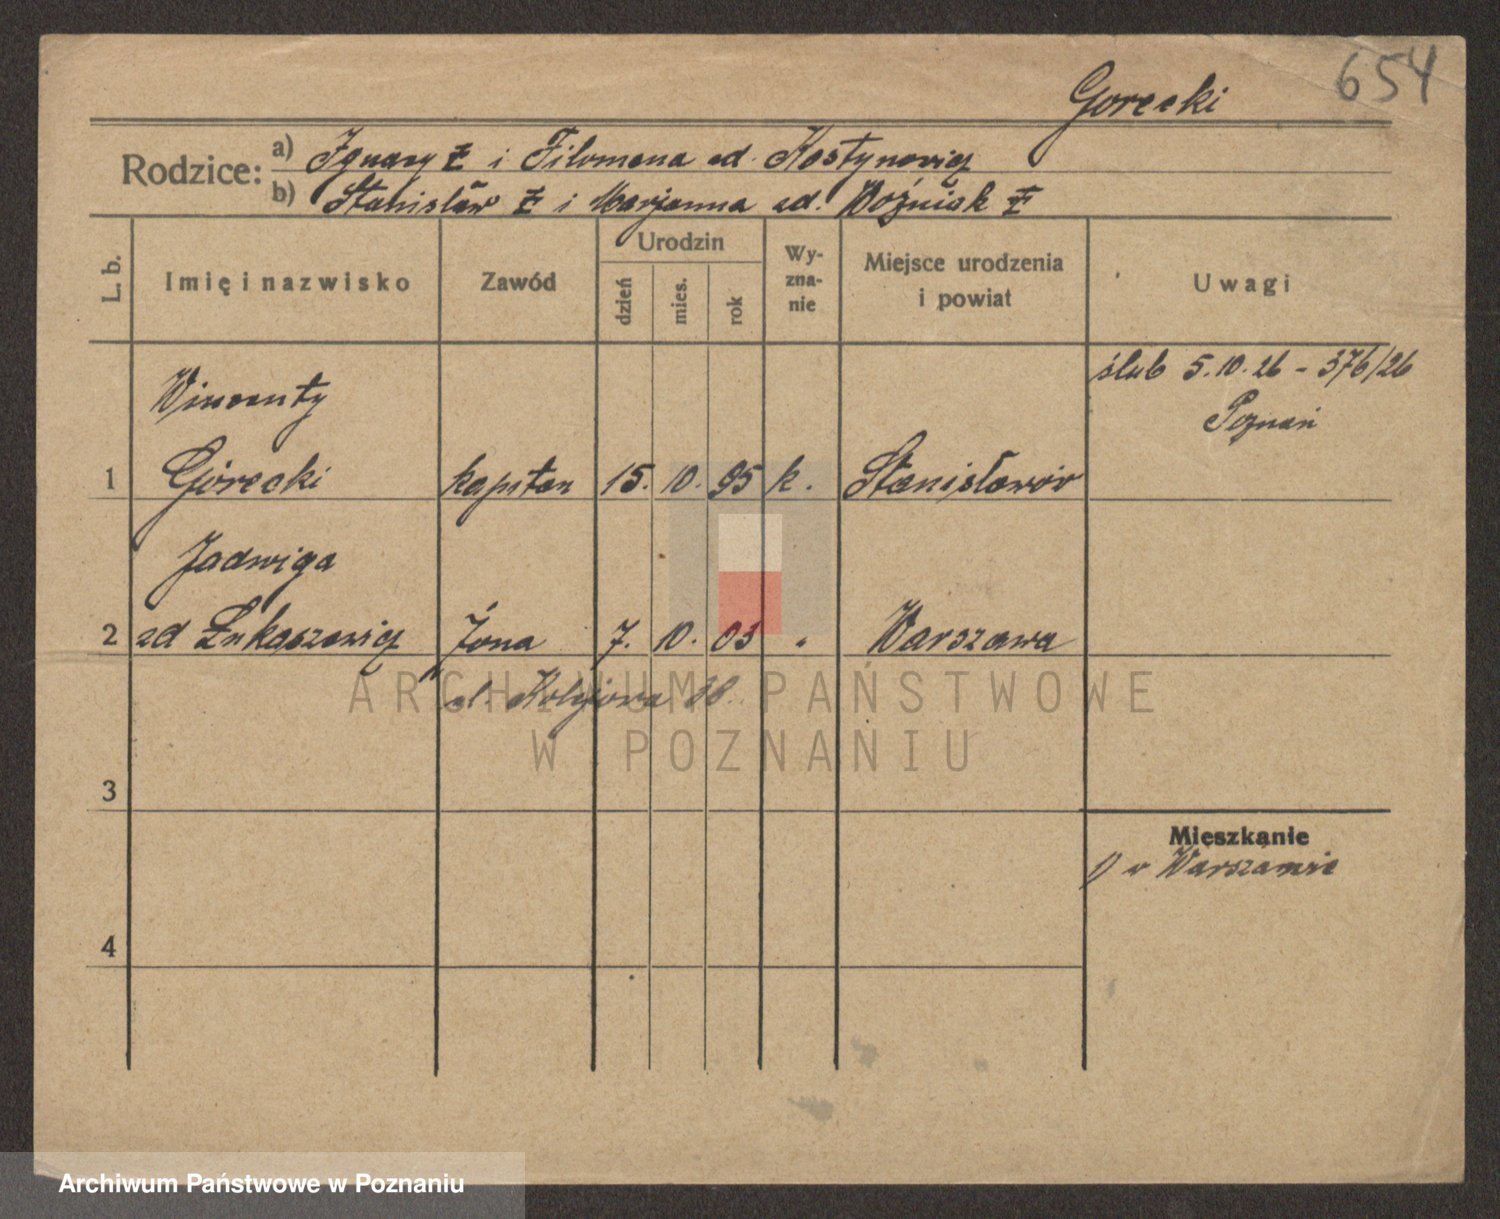 654
Gorecki
Rodzice: a) Ignacy ✝ i Filomena zd. Kostynowicz
b) Stanisław ✝ i Marjanna zd. Woźniak ✝
L. b. Imię i nazwisko Zawód Urodzin dzień mies. rok Wy-zna-nie Miejsce urodzenia i powiat Uwagi
ślub 5.10.26 - 376/26
Poznań
Wincenty
1 Górecki kapitan 15. 10. 95 k. Stanisławów
Jadwiga
2 zd Łukaszewicz żona 7. 10. 03 " Warszawa
ul. Kolejowa
3
Mieszkanie
1) w Warszawie
4
ARCHIWUM PAŃSTWOWE
W POZNANIU
Archiwum Państwowe w Poznaniu